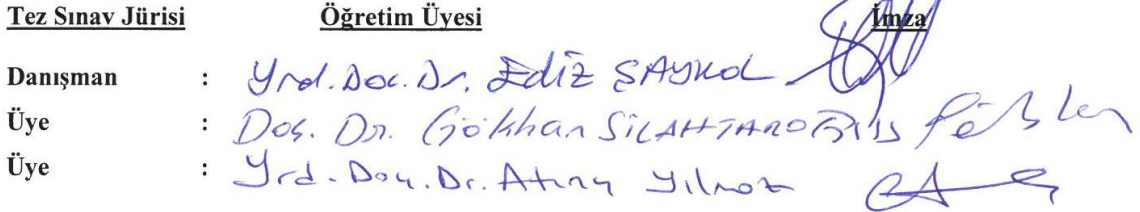 Tez Sınav Jürisi Öğretim Üyesi İmza
Danışman : Yrd. Doc. Dr. Ediz ŞAYKOL
Üye : Doç. Dr. Gökhan SİLAHTAROĞLU
Üye : Yrd. Doç. Dr. Atınç Yılmaz